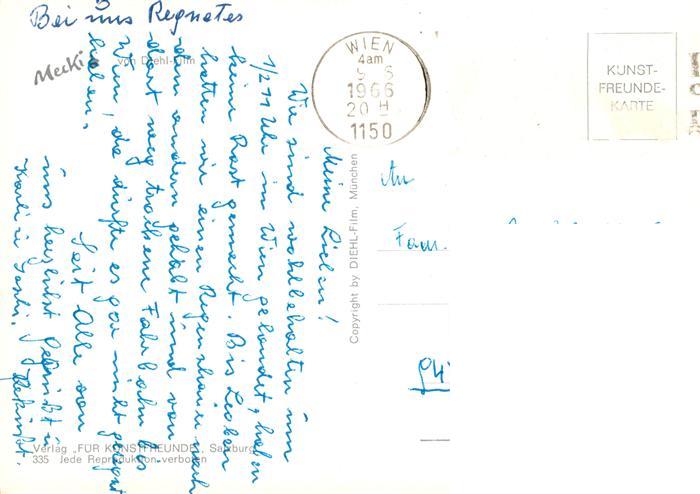 Bei uns Regnet es
Mecki
von Diehl-Film
Meine Lieben!
Wir sind wohlbehalten um
1/2 11 Uhr in Wien gelandet, haben
keine Rast gemacht. Bis Leoben
hatten wir einen Regenschauer nach
dem andern gehabt und von
dort weg trockene Fahrbahn bis
Wien, da dürfte es gar nicht geregnet
haben.
Seit Alle von
uns herzlichst gegrüßt u.
geküßt.
Karli u.
WIEN
4am
1966
20 H
1150
KUNST-
FREUNDE-
KARTE
An
Fam.
Copyright by DIEHL-Film, München
Verlag „FÜR KUNSTFREUNDE", Salzburg
335 Jede Reproduktion verboten